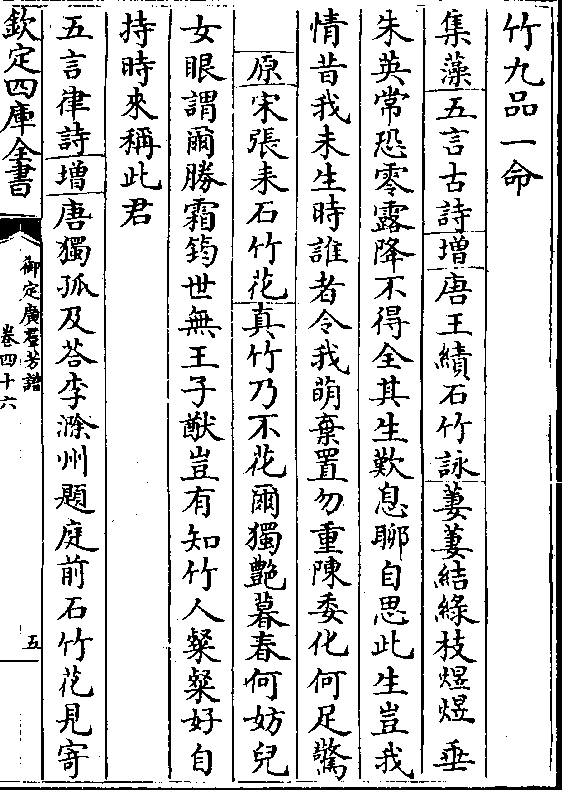 竹九品一命
集藻五言古詩增唐王績石竹詠萋萋結綠枝煜煜垂
朱英常恐零露降不得全其生歎息聊自思此生豈我
情昔我未生時誰者令我萌棄置勿重陳委化何足驚
原宋張耒石竹花真竹乃不花爾獨艷暮春何妨兒
女眼謂爾勝霜筠世無王子猷豈有知竹人粲粲好自
持時來稱此君
五言律詩增唐獨孤及荅李滁州題庭前石竹花見寄
欽定四庫全書
御定廣羣芳譜
卷四十六
五